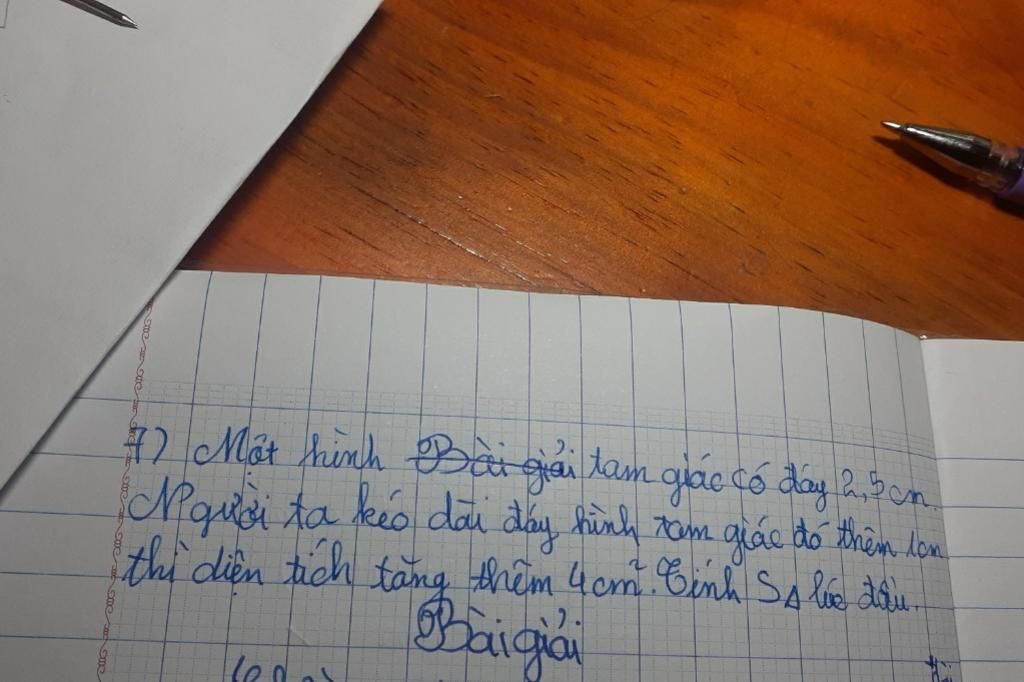 7) Một hình Bài giải tam giác có đáy 2,5 cm.
Người ta kéo dài đáy hình tam giác đó thêm 1cm
thì diện tích tăng thêm 4cm². Tính S∆ lúc đầu.
Bài giải